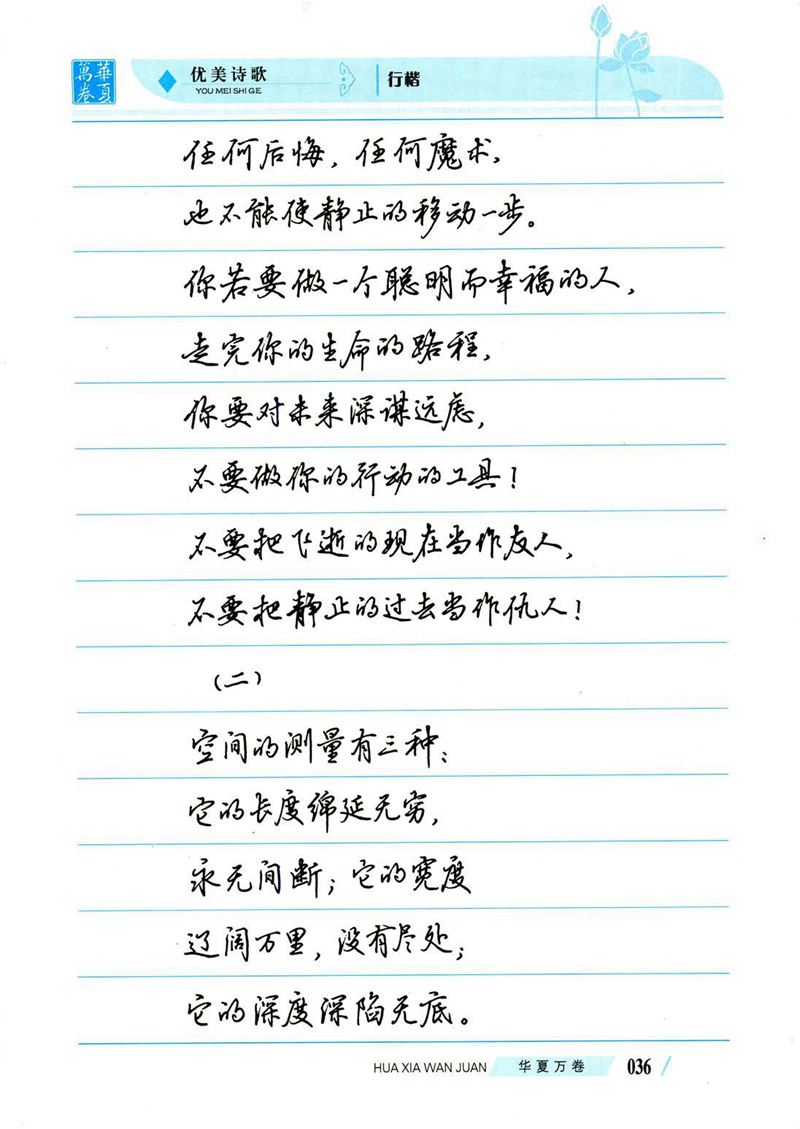 華夏萬卷
优美诗歌
YOU MEI SHI GE
行楷
任何后悔，任何魔术，
也不能使静止的移动一步。
你若要做一个聪明而幸福的人，
走完你的生命的路程，
你要对未来深谋远虑，
不要做你的行动的工具！
不要把飞逝的现在当作友人，
不要把静止的过去当作仇人！
（二）
空间的测量有三种：
它的长度绵延无穷，
永无间断；它的宽度
辽阔万里，没有尽处；
它的深度深陷无底。
HUA XIA WAN JUAN
华夏万卷
036